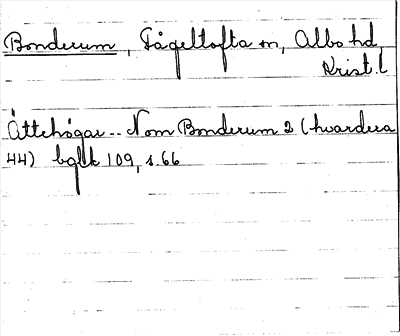 Bonderum, Fågeltofta sn, Albo hd,
Krist. l
Ättehögar -- Nom Bonderum 2 (hvardera
44) bglk 109, s. 66